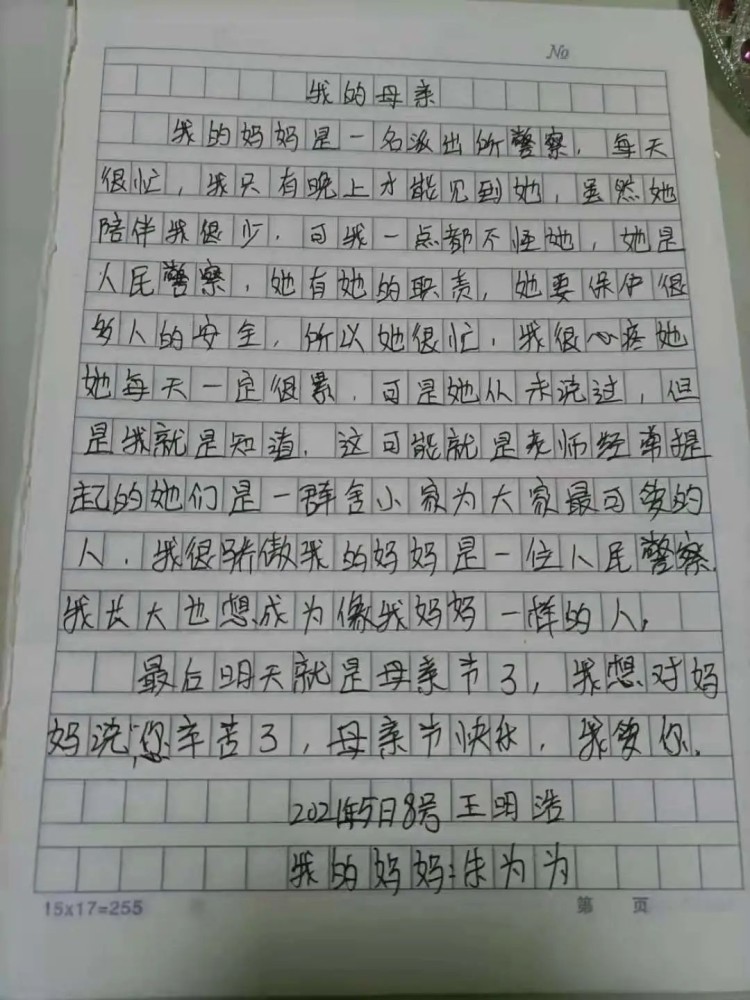 No
我的母亲
我的妈妈是一名派出所警察，每天
很忙，我只有晚上才能见到她，虽然她
陪伴我很少，可我一点都不怪她，她是
人民警察，她有她的职责，她要保护很
多人的安全，所以她很忙，我很心疼她
她每天一定很累，可是她从未说过，但
是我就是知道，这可能就是老师经常提
起的她们是一群舍小家为大家最可爱的
人，我很骄傲我的妈妈是一位人民警察，
我长大也想成为像我妈妈一样的人，
最后明天就是母亲节了，我想对妈
妈说，您辛苦了，母亲节快乐，我爱你，
2021年5日8号王明浩
我的妈妈：朱为为
15x17=255 第 页